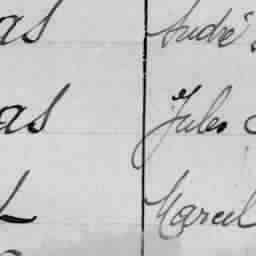 as André
as Jules
L Marcel